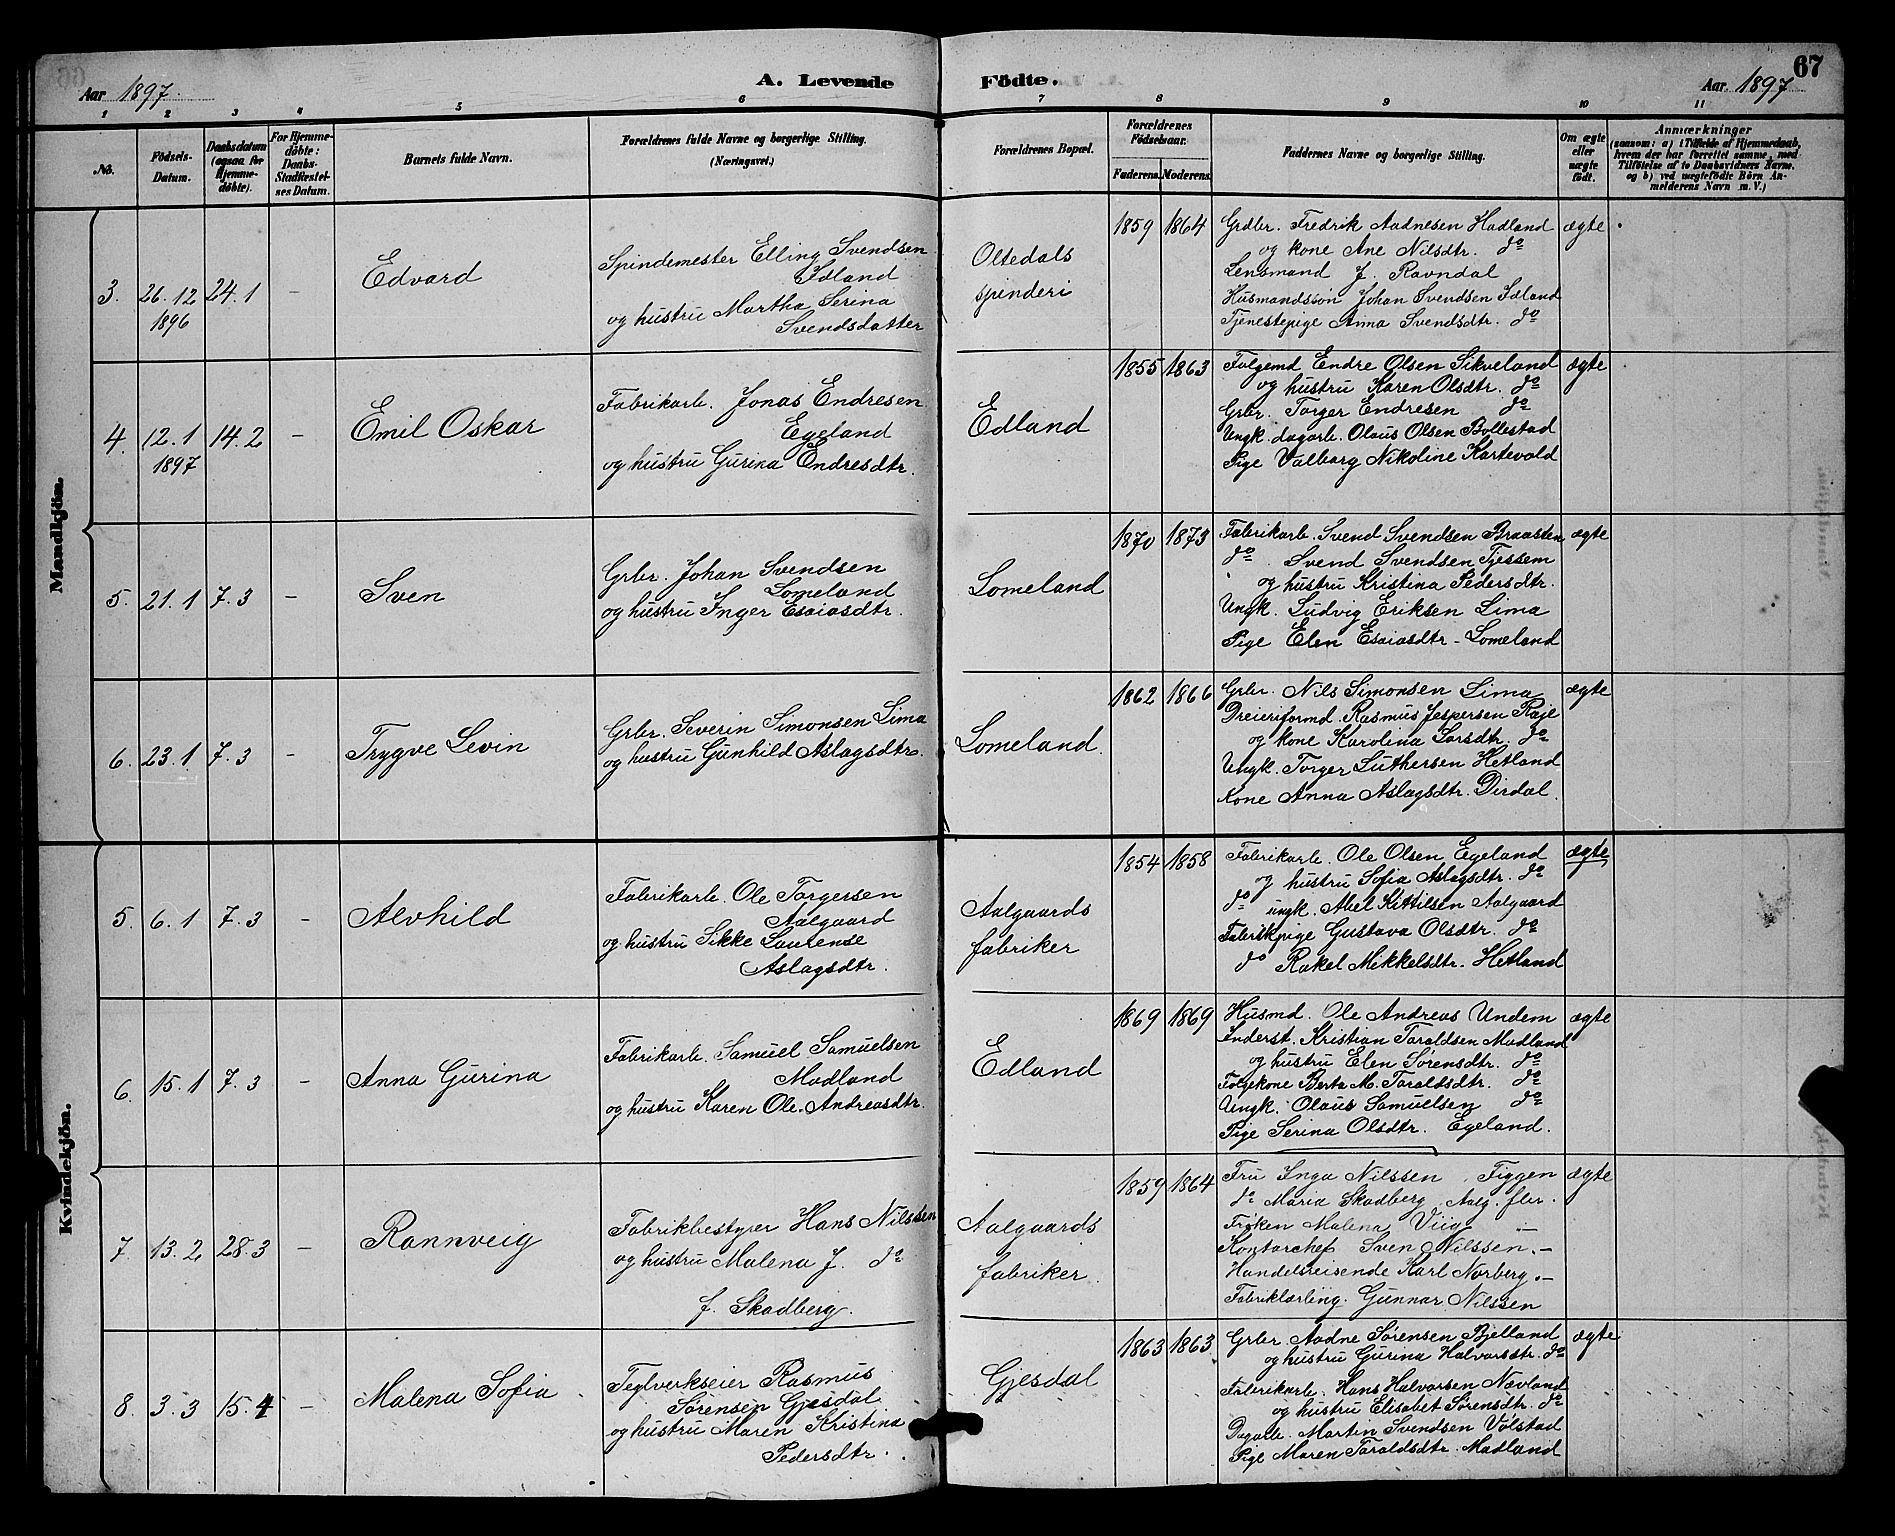 Aar 1897.
A. Levende Födte.
67
Aar 1897
1 2 3 4 5 6 7 8 9 10 11
No.
Födsels-
Datum.
Daabsdatum
(ogsaa for
Hjemme-
döbte).
For Hjemme-
döbte:
Daabs-
Stadfæstel-
ses Datum.
Barnets fulde Navn.
Forældrenes fulde Navne og borgerlige Stilling.
(Næringsvei.)
Forældrenes Bopæl.
Forældrenes
Födselsaar.
Faderens. Moderens.
Faddernes Navne og borgerlige Stilling.
Om ægte
eller
uægte
födt.
Anmærkninger
(saasom: a) i Tilfælde af Hjemmedaab,
hvem der har forrettet samme, med
Tilföielse af to Daabsvidners Navne.
og b) ved uægtefödte Börn An-
melderens Navn m. V.)
Mandkjön.
3. 26.12 24.1 –
1896
Edvard
Spindemester Elling Svendsen
Idland
og hustru Martha Serina
Svendsdatter
Oltedals
spinderi
1859 1864
Grdbr. Fredrik Aadnesen Hadland
og kone Ane Nilsdtr. do
Lensmand J. Ravndal
Husmandssøn Johan Svendsen Idland
Tjenestepige Anna Svendsdtr. do
ægte
4. 12.1 14.2 –
1897
Emil Oskar
Fabrikarb. Jonas Endresen
Egeland
og hustru Gurina Endresdtr.
Edland
1855 1863
Følgemd Endre Olsen Sikveland
og hustru Karen Olsdtr. do
Grbr. Torger Endresen do
Ungk. dagarb. Olaus Olsen Bollestad
Pige Valborg Nikoline Kartevold
ægte
5. 21.1 7.3 –
Sven
Grbr. Johan Svendsen
Lomeland
og hustru Inger Esaiasdtr.
Lomeland
1870 1873
Fabrikarb. Svend Svendsen Braasten
do Svend Svendsen Tjessem
og hustru Kristina Pedersdtr.
Ungk. Ludvig Eriksen Lima
Pige Elen Esaiasdtr - Lomeland
ægte
6. 23.1 7.3 –
Trygve Levin
Grbr. Severin Simonsen Lima
og hustru Gunhild Aslagsdtr.
Lomeland.
1862 1866
Grbr. Nils Simonsen Lima
Dreieriformd. Rasmus Jespersen Røje
og kone Karolina Larsdtr. do
Ungk. Torger Luthersen Hetland
Kone Anna Aslagsdtr. Dirdal.
ægte
Kvindekjön.
5. 6.1 7.3 –
Alvhild
Fabrikarb. Ole Torgersen
Aalgaard
og hustru Sikke Laurense
Aslagsdtr.
Aalgaards
fabriker
1854 1858
Fabrikarb. Ole Olsen Egeland
og hustru Sofia Aslagsdtr. do
do ungk. Abel Kittilsen Aalgaard
Fabrikpige Gustava Olsdtr. do
do Rakel Mikkelsdtr. Hetland
ægte
6. 15.1 7.3 –
Anna Gurina
Fabrikarb. Samuel Samuelsen
Madland
og hustru Karen Ole-Andreasdtr.
Edland
1869 1869
Husmd. Ole Andreas Undem
Inderst. Kristian Taraldsen Madland
og hustru Elen Sørensdtr. do
Følgekone Berta M. Taraldsdtr. do
Ungk. Olaus Samuelsen do
Pige Serina Olsdtr. Egeland.
ægte
7. 13.2 28.3 –
Rannveig
Fabrikbestyrer Hans Nilssen
og hustru Malena J. do
f. Skadberg.
Aalgaards
fabriker.
1859 1864
Fru Inga Nilssen, Figgen
do Maria Skadberg Aalg. fbr.
Frøken Malena Viig –
Kontorchef Sven Nilssen. –
Handelsreisende Karl Norberg. –
Fabriklærling. Gunnar Nilssen
ægte
8. 3.3 15.4 –
Malena Sofia
Teglverkseier Rasmus
Sørensen Gjesdal
og hustru Maren Kristina
Pedersdtr.
Gjesdal
1863 1863
Grbr. Aadne Sørensen Bjelland
og hustru Gurina Halvorsdtr. do
Fabrikarb. Hans Halvorsen Nævland
og hustru Elisabet Sørensdtr. do
Dagarb. Martin Svendsen Vølstad
Pige Maren Taraldsdtr. Madland
ægte